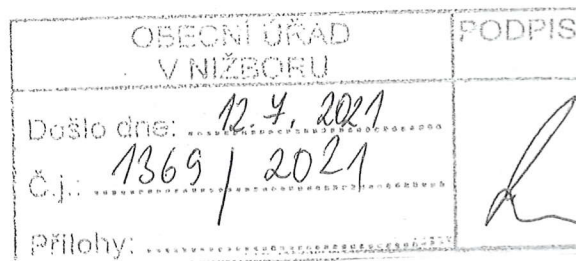 OBECNÍ ÚŘAD
V NIŽBORU
PODPIS
Došlo dne: 12. 7. 2021
Č.j.: 1369 / 2021
Přílohy: